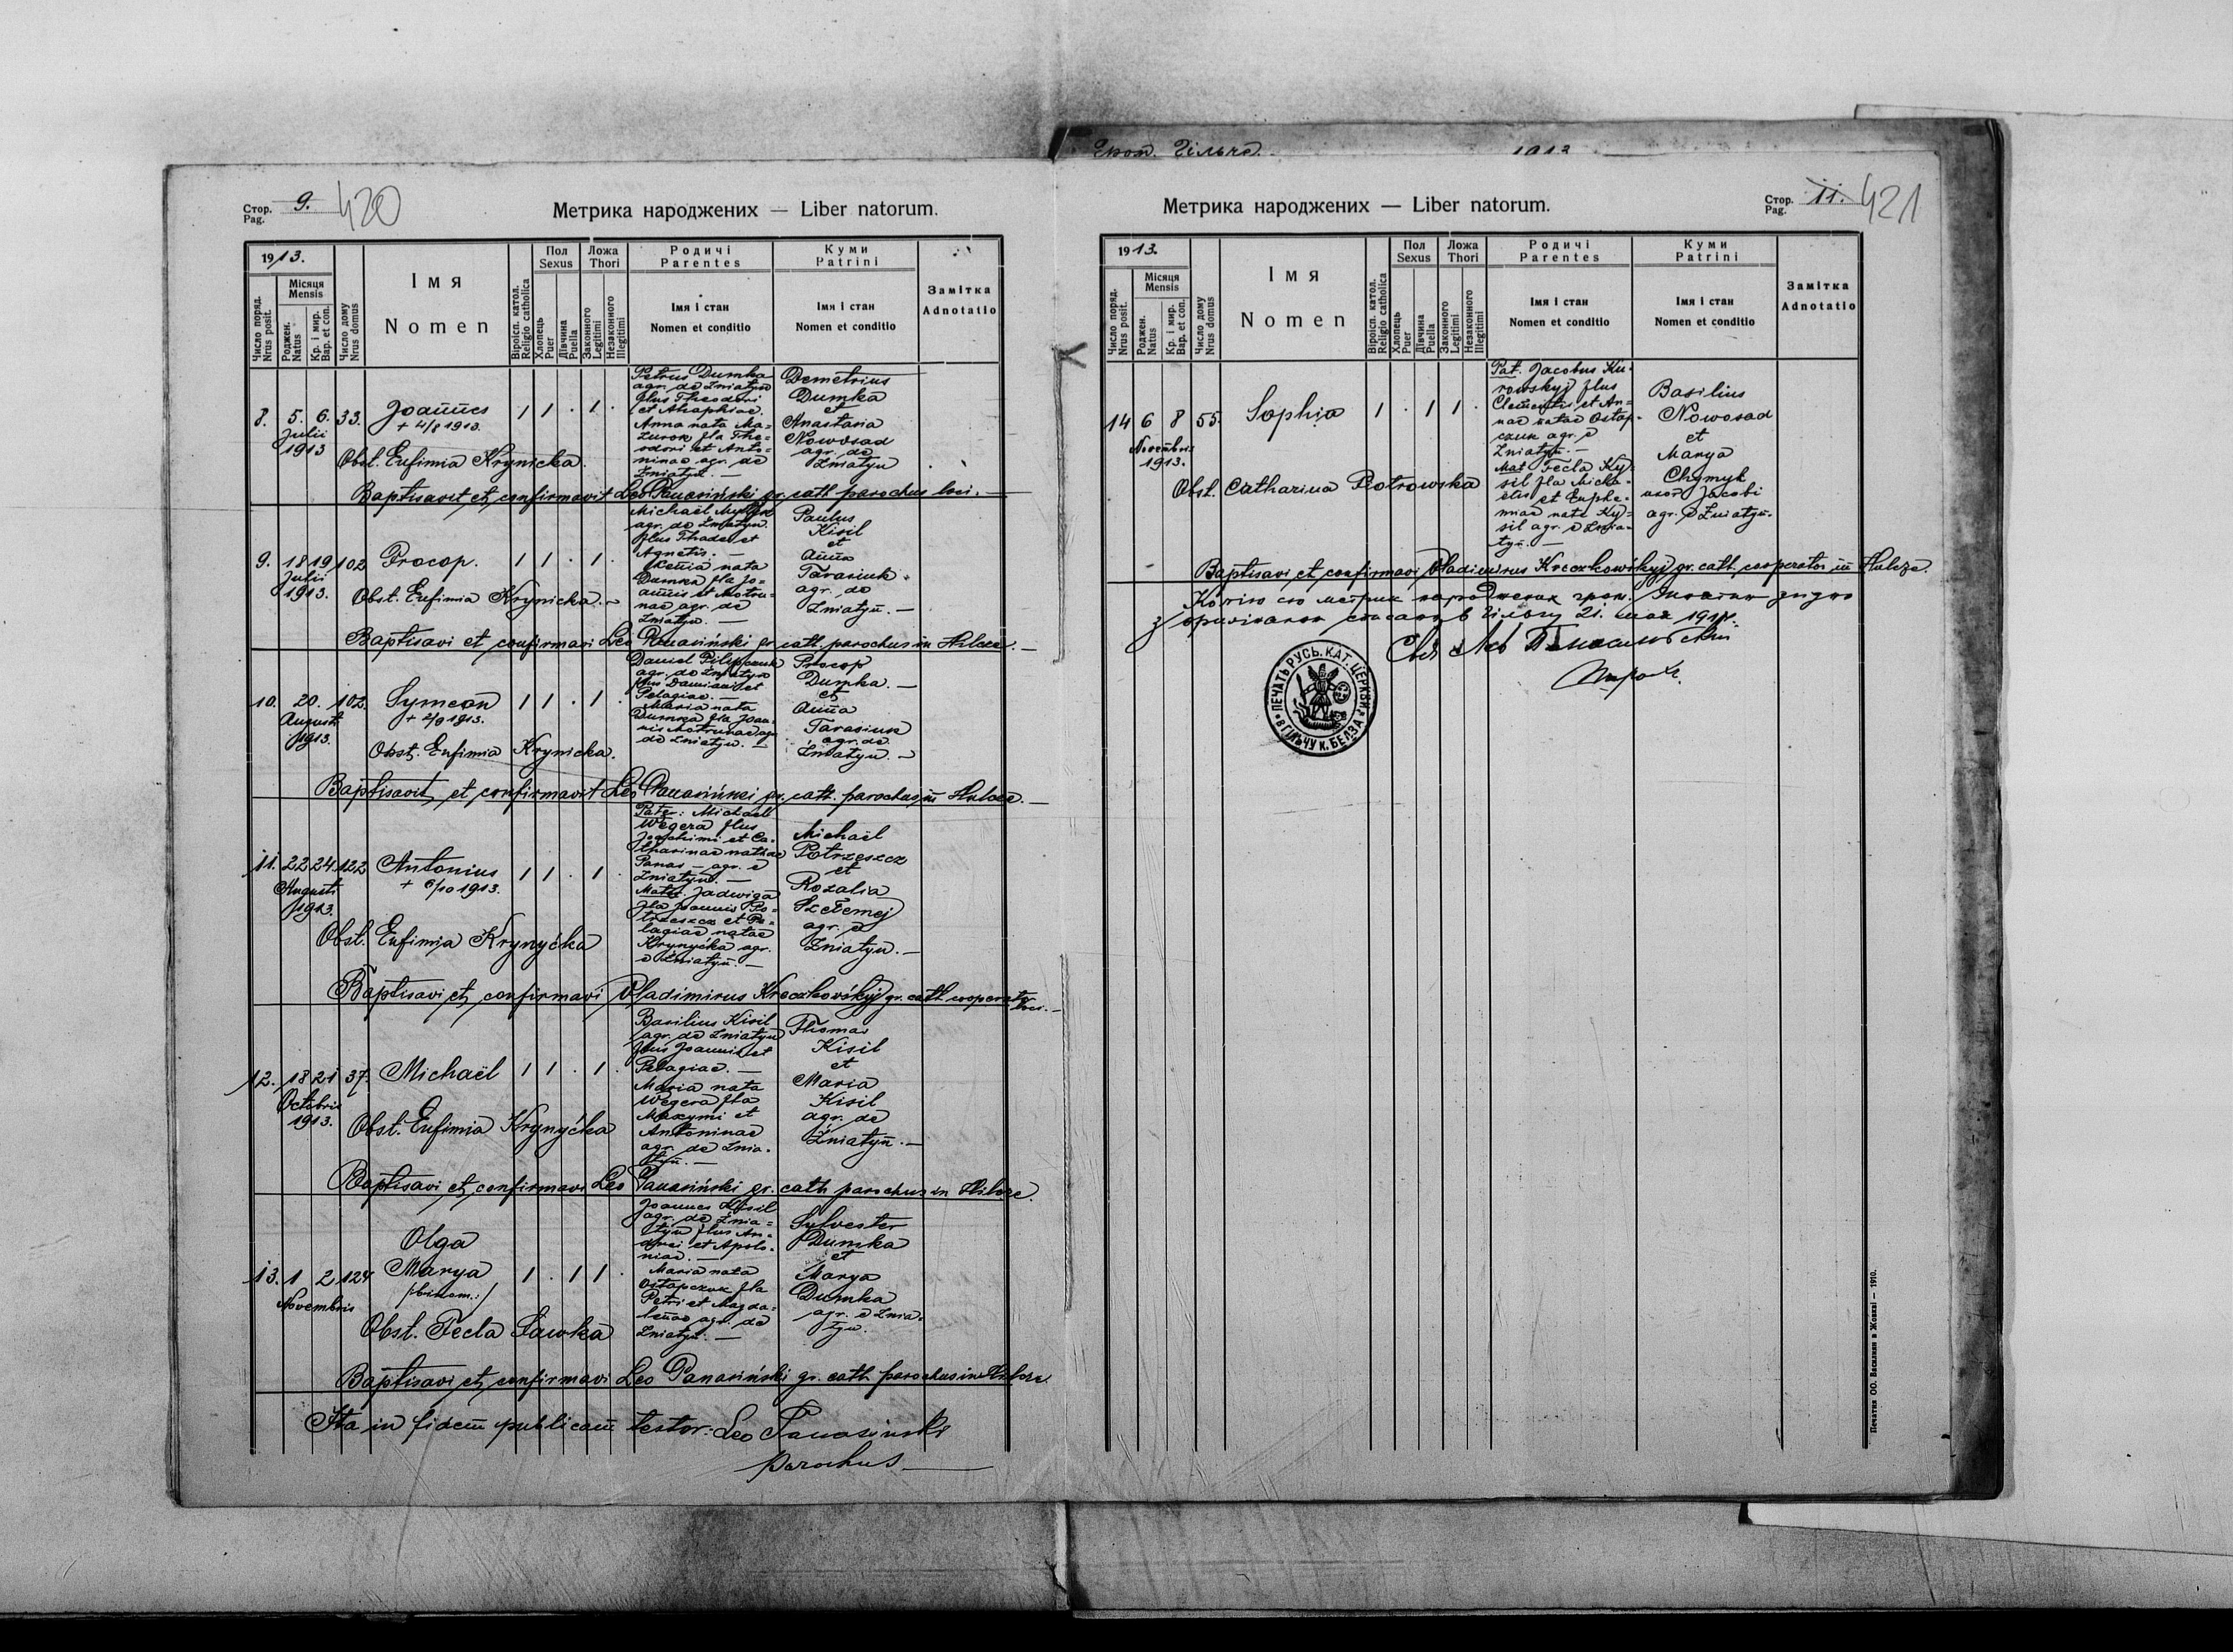 Стор. 9. 420
Pag.
Метрика народжених — Liber natorum.
1913.
Число поряд.
Nrus posit.
Місяця
Mensis
Роджен.
Natus
Кр. і мир.
Bap. et con.
Число дому
Nrus domus
Імя
Nomen
Віроісп. катол.
Religio catholica
Пол
Sexus
Хлопець
Puer
Дівчина
Puella
Ложа
Thori
Законного
Legitimi
Незаконного
Illegitimi
Родичі
Parentes
Імя і стан
Nomen et conditio
Куми
Patrini
Імя і стан
Nomen et conditio
Замітка
Adnotatio
8. 5. 6. 33. Joannes 1 1 . 1 .
Julii
1913
+ 4/8 1913.
Petrus Dumka
agr. de Żniatyn
flus Theodori
et Ahaphiae.
Anna nata Ma=
zurok fla The=
odori et Anto=
ninae agr. de
Żniatyn. —
Demetrius
Dumka
et
Anastasia
Nowosad
agr. de
Żniatyn
Obst. Eufimia Krynicka.
Baptisavit et confirmavit Leo Panasiński gr. cath parochus loci. —
9. 18 19 102 Procop. 1 1 . 1 .
Julii
1913.
Michaël
agr. de Żniatyn.
flus Thadei et
Agnetis. —
Xenia nata
Dumka fla Jo=
annis et Motru=
nae agr. de
Żniatyn. —
Paulus
Kisil
et
Anna
Tarasiuk
agr. de
Żniatyn. —
Obst. Eufimia Krynicka. —
Baptisavi et confirmavi Leo Panasiński gr. cath. parochus in Hulcze. —
10. 20. 102. Symeon 1 1 . 1 .
Augusti
1913.
+ 2/9 1913.
Daniel Pilipczuk
agr. de Żniatyn
flus Damiani et
Pelagiae. —
Maria nata
Dumka fla Joan=
nis Motrunae agr.
de Żniatyn. —
Procop
Dumka. —
et
Anna
Tarasiuk
agr. de
Żniatyn. —
Obst. Eufimia Krynicka.
Baptisavit et confirmavit Leo Panasiński gr. cath. parochus in Hulcze. —
11. 22 24 122 Antonius 1 1 . 1 .
Augusti
1913.
+ 6/10 1913.
Pater: Michael
Wegera flus
Joachimi et Ca=
tharinae natae
Panas — agr. e
Żniatyn. —
Mater: Jadwiga
fla Joannis Po=
trzeszcz et Pe=
lagiae natae
Krynyćka agr.
e Żniatyn. —
Michaël
Potrzeszcz
et
Rozalia
Szełemej
agr. e
Żniatyn. —
Obst. Eufimia Krynyćka
Baptisavi et confirmavi Vladimirus Kreczkowśkyj gr. cath cooperator
loci. —
12. 18 21 37. Michaël 1 1 . 1 .
Octobris
1913.
Basilius Kisil
agr. de Żniatyn
flus Joannis et
Pelagiae. —
Maria nata
Wegera fla
Maxymi et
Antoninae
agr. de Żnia=
tyn. —
Thomas
Kisil
et
Maria
Kisil
agr. de
Żniatyn. —
Obst. Eufimia Krynyćka
Baptisavi et confirmavi Leo Panasiński gr. cath parochus in Hilcze.
13. 1 2 124 Olga
Marya 1 . 1 1 .
Novembris
/:binom.:/
Joannes Kisil
agr. de Żnia=
tyn flus An=
drei et Apolo=
niae. —
Maria nata
Ostapczuk fla
Petri et Magda=
lenae agr. de
Żniatyn. —
Sylvester
Dumka
et
Marya
Dumka
agr. e Żnia=
tyn.
Obst. Tecla Ławka
Baptisavi et confirmavi Leo Panasiński gr. cath parochus in Hilcze.
Ita in fidem publicam testor: Leo Panasiński
parochus —
Гром. Гільче. 1913
Метрика народжених — Liber natorum.
Стор. 11. 421
Pag.
1913.
Число поряд.
Nrus posit.
Місяця
Mensis
Роджен.
Natus
Кр. і мир.
Bap. et con.
Число дому
Nrus domus
Імя
Nomen
Віроісп. катол.
Religio catholica
Пол
Sexus
Хлопець
Puer
Дівчина
Puella
Ложа
Thori
Законного
Legitimi
Незаконного
Illegitimi
Родичі
Parentes
Імя і стан
Nomen et conditio
Куми
Patrini
Імя і стан
Nomen et conditio
Замітка
Adnotatio
14 6 8 55. Sophia 1 . 1 1 .
Novembris
1913.
Pat. Jacobus Ku=
rowskyj flus
Clementis et An=
nae natae Ostap=
czuk agr. e
Żniatyn. —
Mat. Tecla Ky=
sil fla Micha=
elis et Euphe=
miae nata Ky=
sil agr. e Żnia=
tyn. —
Basilius
Nowosad
et
Marya
Chomyk
uxor Jacobi
agr. e Żniatyn.
Obst. Catharina Piotrowska
Baptisavi et confirmavi Vladimirus Kreczkowśkyj gr. cath. cooperator in Hulcze.
Копію сю метрик народжених гром. Зніатин згідно
з оригіналом списано в Гільчу 21. мая 1914.
Свящ. Лев Панасиньский
парох.
ПЕЧАТЬ РУСЬ. КАТ. ЦЕРКВИ
В ГІЛЬЧУ К. БЕЛЗА
Печатня ОО. Василиян в Жовкві — 1910.